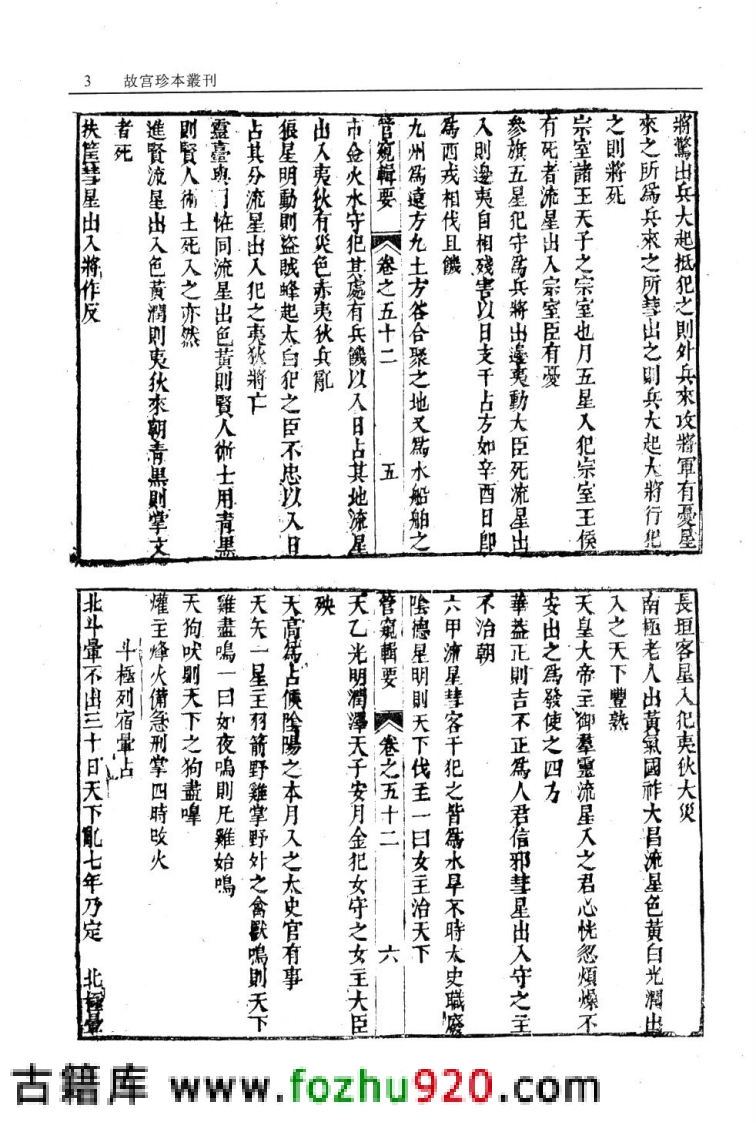 3 故宫珍本叢刊
將驚出兵大起抵犯之則外兵來攻將軍有憂星
來之所爲兵來之所彗出之則兵大起大將行犯
之則將死
宗室諸王天子之宗室也月五星入犯宗室王侯
有死者流星出入宗室臣有憂
參旗五星犯守爲兵將出邊夷動大臣死流星出
入則邊夷自相殘害以日支干占方如辛酉日即
爲西戎相伐且饑
九州爲遠方九土方答合聚之地又爲水船舶之
管窺輯要 卷之五十二 五
市金火水守犯其處有兵饑以入日占其地流星
出入夷狄有災色赤夷狄兵亂
狼星明動則盜賊蜂起太白犯之臣不忠以入日
占其分流星出入犯之夷狄將亡
靈臺與司怪同流星出色黃則賢人術士用青黑
則賢人術士死入之亦然
進賢流星出入色黃潤則夷狄來朝青黑則掌文
者死
扶筐彗星出入將作反
長垣客星入犯夷狄大災
南極老人出黃氣國祚大昌流星色黃白光潤出
入之天下豐熟
天皇大帝主御羣靈流星入之君心恍忽煩燥不
安出之爲發使之四方
華葢正則吉不正爲人君信邪彗星出入守之主
不治朝
六甲流星彗客干犯之皆爲水旱不時太史職廢
陰德星明則天下伐至一曰女主治天下
管窺輯要 卷之五十二 六
天乙光明潤澤天子安月金犯女守之女主大臣
殃
天高爲占候陰陽之本月入之太史官有事
天矢一星主羽箭野雞掌野外之禽獸鳴則天下
雞盡鳴一曰如夜鳴則凡雞始鳴
天狗吠則天下之狗盡嘷
爟主烽火備急刑掌四時改火
斗極列宿暈占
北斗暈不出三十日天下亂七年乃定 北極暈
古籍库 www.fozhu920.com